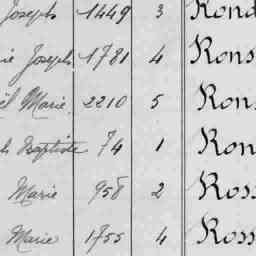 Joseph 1449 3 Rond
ie Joseph 1781 4 Rons
ël Marie 2210 5 Rons
h Baptiste 74 1 Ron
Marie 958 2 Ross
Marie 1755 4 Ross